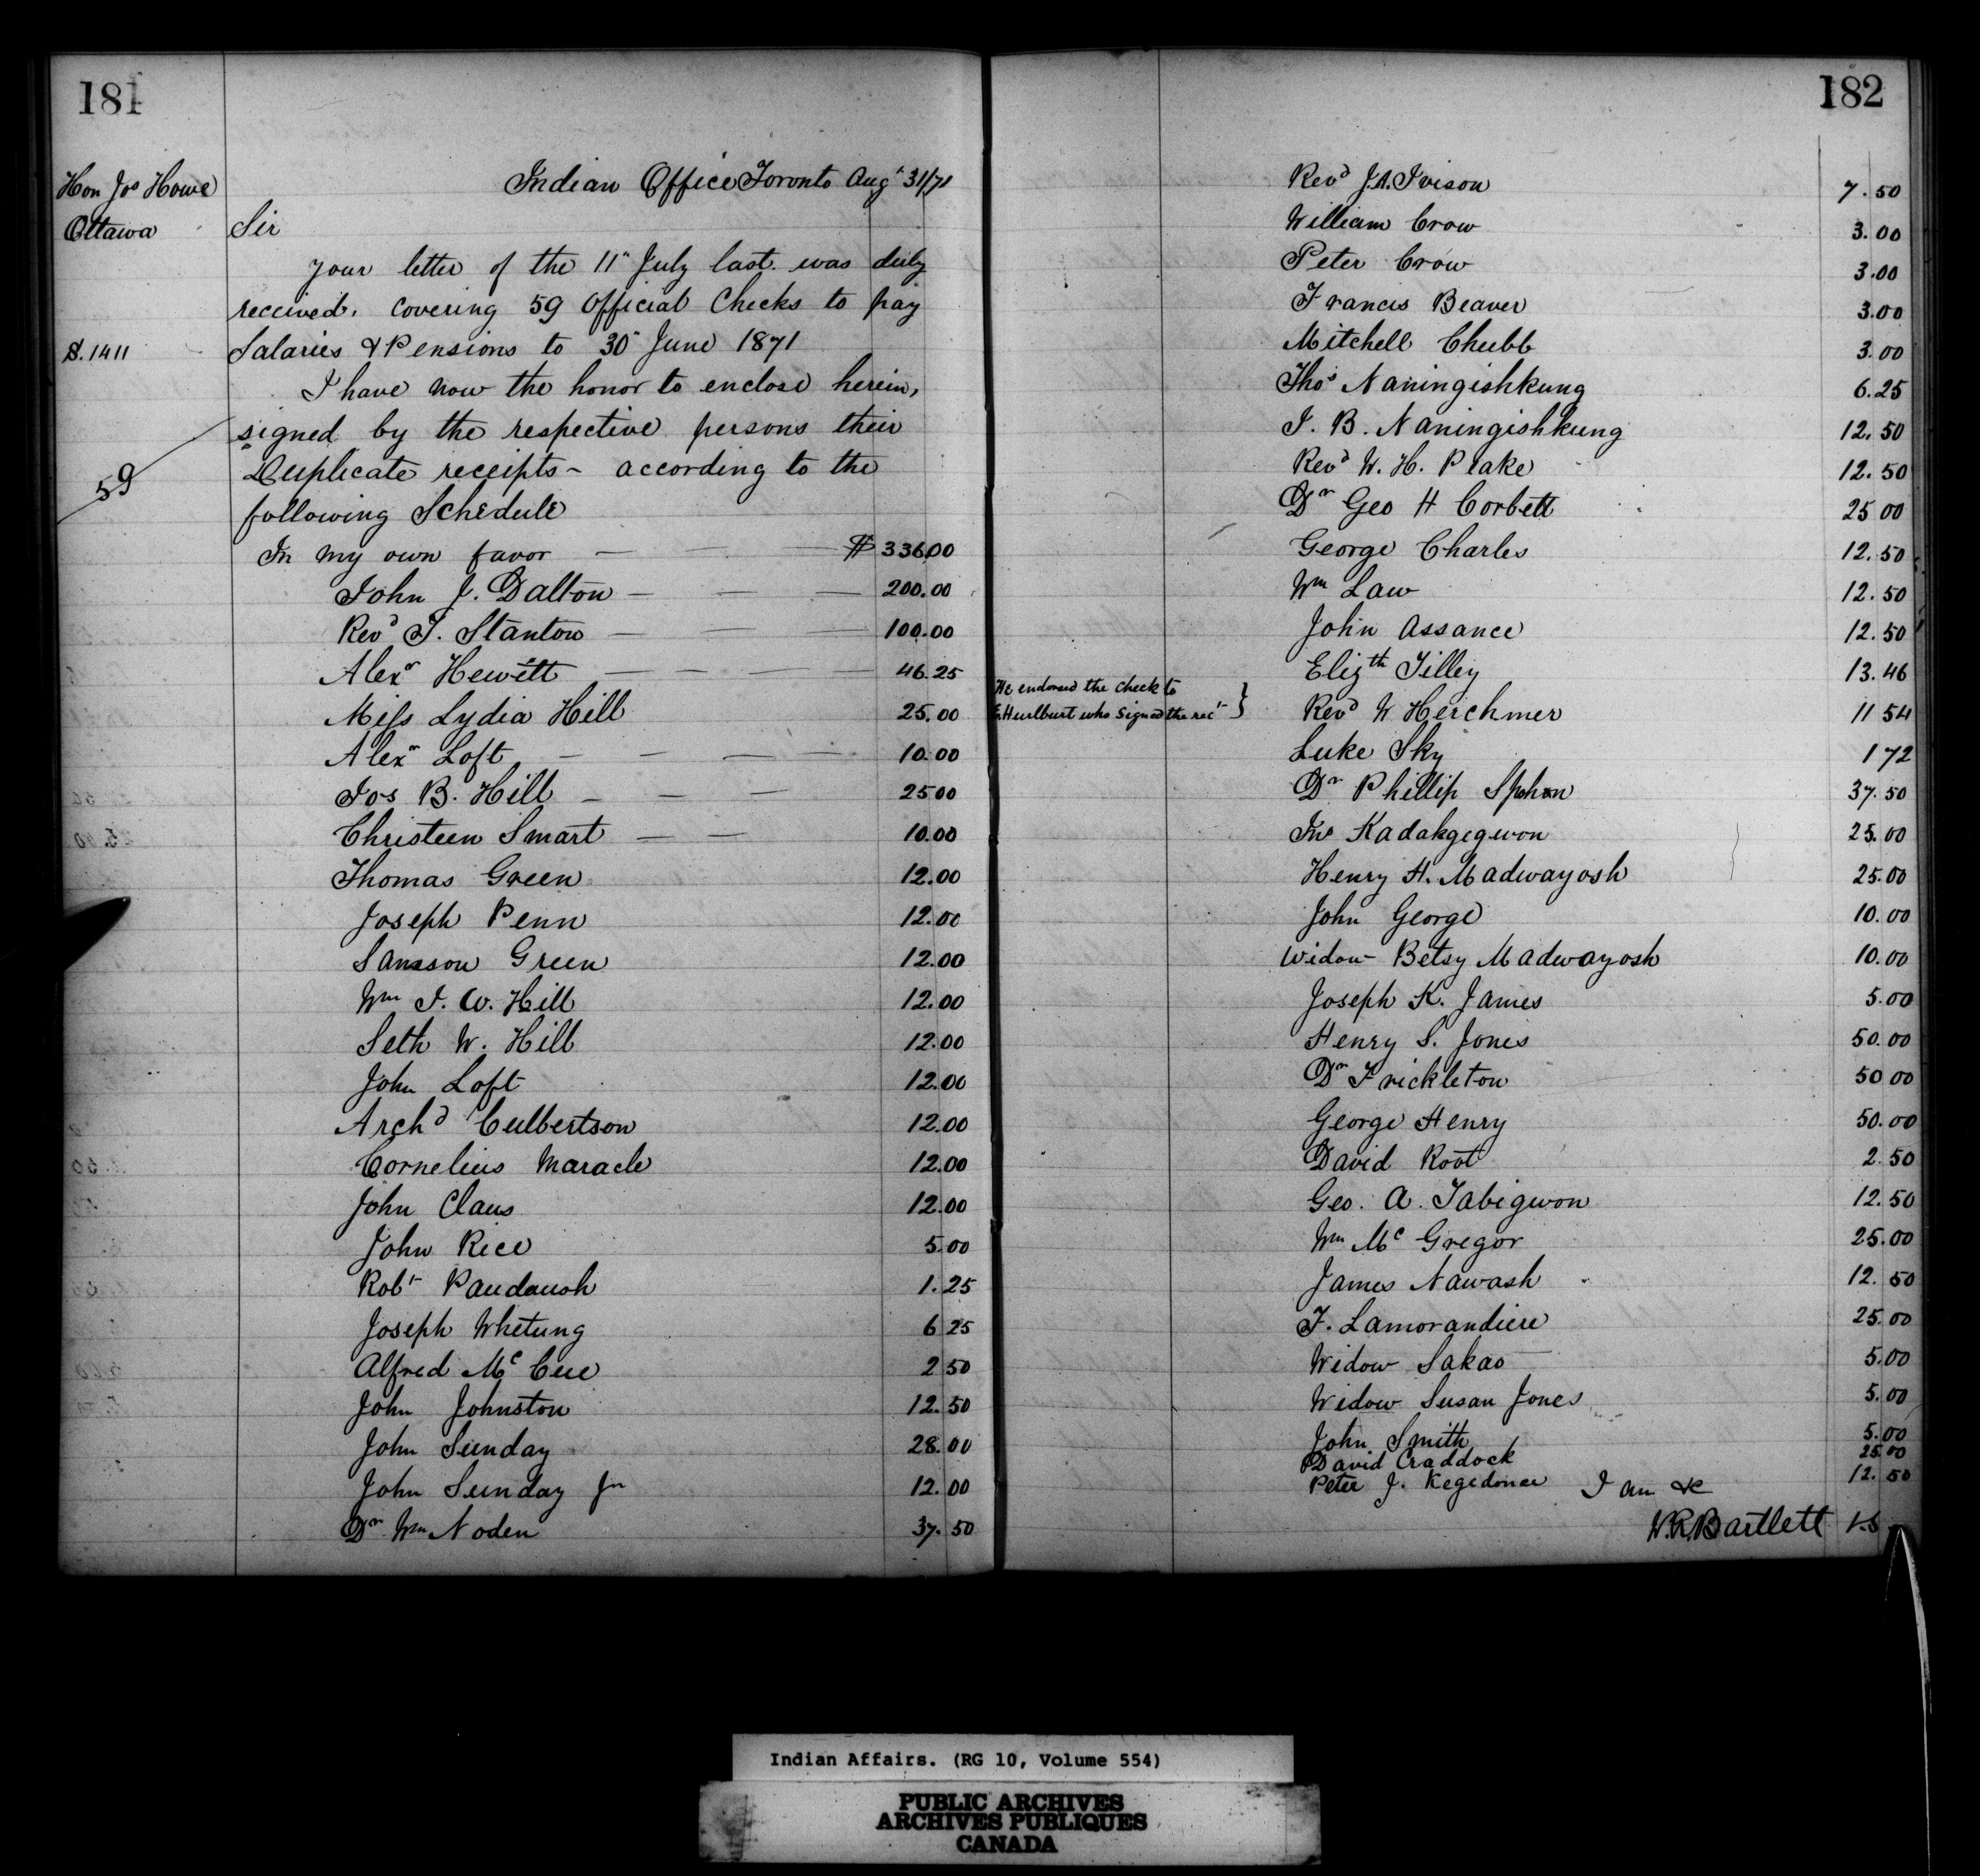 181
Hon Jos Howe
Ottawa
S. 1411
59
Indian Office Toronto Augt 31/71
Sir
Your letter of the 11" July last was duly
received, covering 59 Official Checks to pay
Salaries & Pensions to 30" June 1871
I have now the honor to enclose herein,
signed by the respective persons their
Duplicate receipts - according to the
following Schedule
In my own favor — — — $ 336.00
John J. Dalton — — — 200.00
Revd T. Stanton — — — 100.00
Alexr Hewitt — — — — 46.25
Miss Lydia Hill 25.00
Alexr Loft — — — — 10.00
Jos B. Hill — — — 25 00
Christeen Smart — — 10.00
Thomas Green 12.00
Joseph Penn 12.00
Samson Green 12.00
Wm J. W. Hill 12.00
Seth W. Hill 12.00
John Loft 12.00
Archd Culbertson 12.00
Cornelius Maracle 12.00
John Claus 12.00
John Rice 5.00
Robt Paudaush 1.25
Joseph Whetung 6 25
Alfred Mc Cue 2 50
John Johnston 12.50
John Sunday 28.00
John Sunday Jr 12.00
Dr Wm Noden 37.50
182
Revd J.A. Ivison 7.50
William Crow 3.00
Peter Crow 3.00
Francis Beaver 3.00
Mitchell Chubb 3.00
Thos Naningishkung 6.25
J. B. Naningishkung 12.50
Revd W. H. Peake 12.50
Dr Geo H Corbett 25 00
George Charles 12.50
Wm Law 12.50
John Assance 12.50
Elizth Tilley 13.46
He endorsed the check to
E. Hurlburt who signed the rect } Revd W Herchmer 11 54
Luke Sky 1 72
Dr Phillip Spohn 37.50
Jno Kadakgegwon 25.00
Henry H. Madwayosh 25.00
John George 10.00
Widow Betsy Madwayosh 10.00
Joseph K. James 5.00
Henry S. Jones 50.00
Dr Frickleton 50 00
George Henry 50.00
David Root 2.50
Geo. A. Tabigwon 12.50
Wm Mc Gregor 25.00
James Nawash 12.50
F. Lamorandiere 25.00
Widow Sakao 5.00
Widow Susan Jones 5.00
John Smith 5.00
David Craddock 25.00
Peter J. Kegedonce 12.50
I am &c
W.R. Bartlett
Indian Affairs. (RG 10, Volume 554)
PUBLIC ARCHIVES
ARCHIVES PUBLIQUES
CANADA